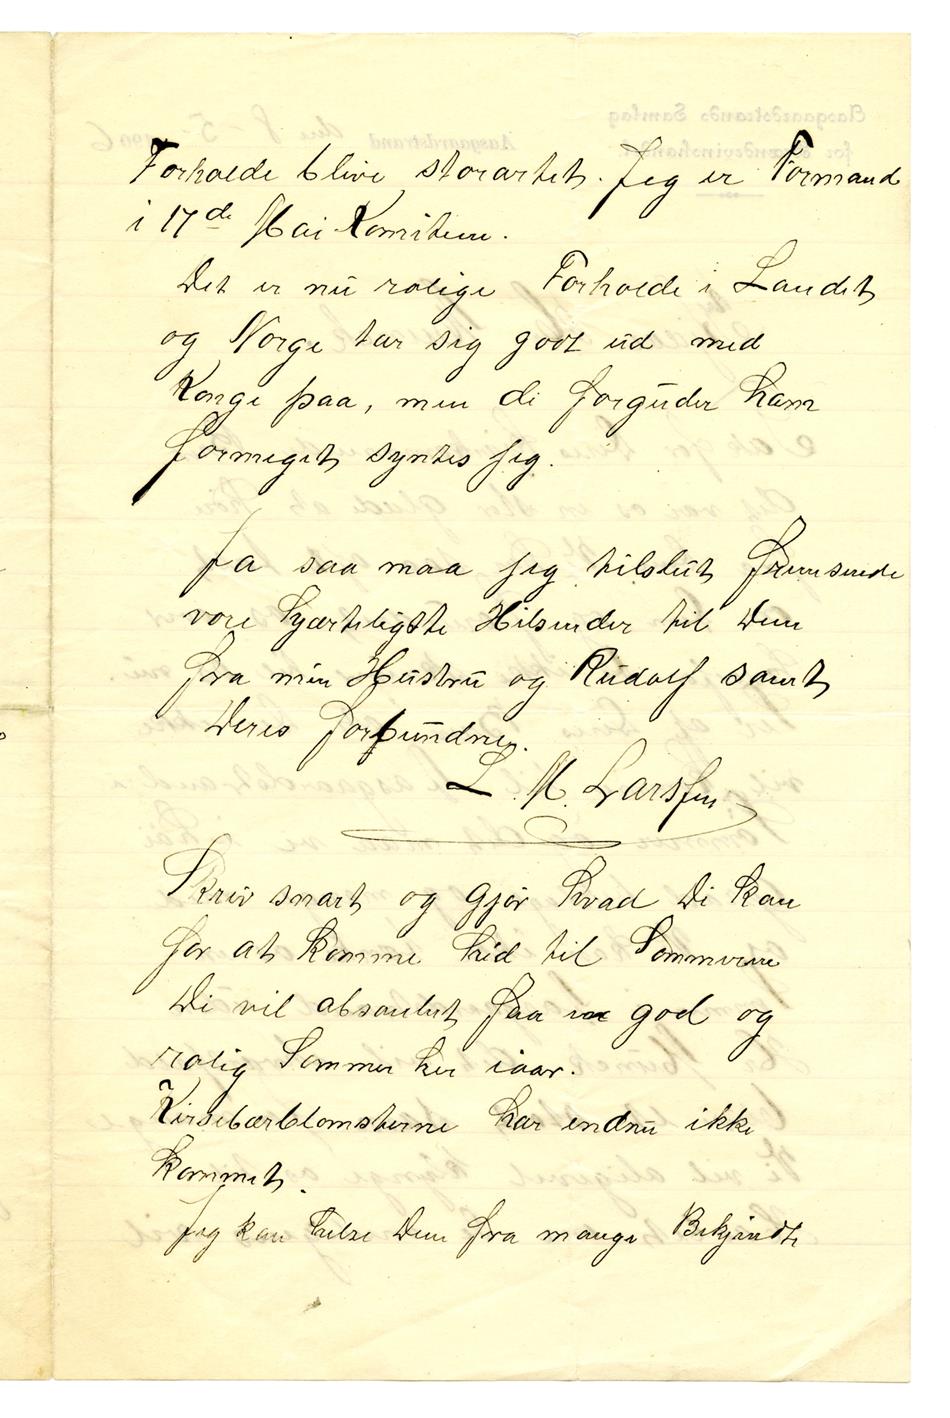 Forholde blive storartet. Jeg er Formand
i 17de Mai Komiteen.
Det er nu rolige Forholde i Landet
og Norge tar sig godt ud med
Konge paa, men de forguder ham
formeget syntes jeg.
Ja saa maa jeg tilslut fremsende
vore hjærteligste Hilsender til Dem
fra min Hustru og Rudolf samt
Deres forbundne.
L. M. Larssen
Skriv snart og gjør hvad De kan
for at komme hid til Sommeren
De vil absolut faa en god og
rolig Sommer her iaar.
Kirsebærblomsterne har endnu ikke
kommet.
Jeg kan hilse Dem fra mange Bekjendte